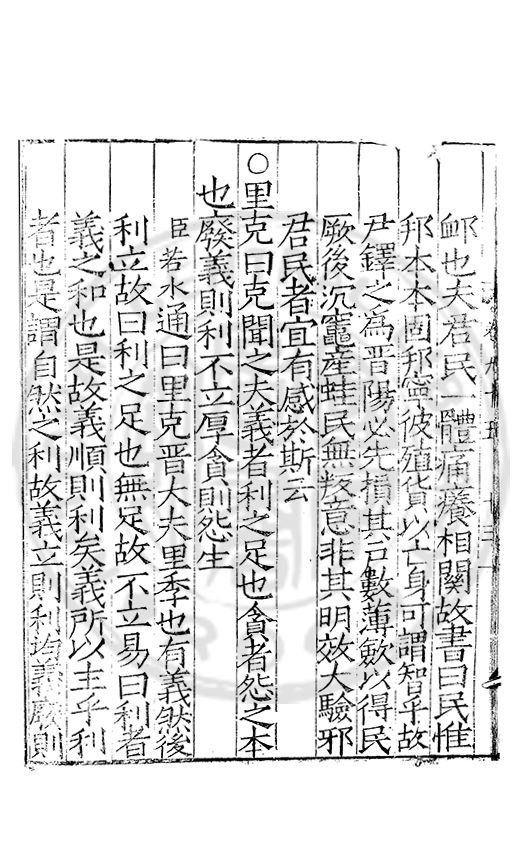 邺也夫君民一體痛癢相關故書曰民惟
邦本本固邦寧彼殖貨以亡身可謂智乎故
尹鐸之為晋陽必先損其戶數薄斂以得民
厥後沉竈產蛙民無叛意非其明效大驗邪
君民者宜有感於斯云
○里克曰克聞之夫義者利之足也貪者怨之本
也廢義則利不立厚貪則怨生
臣若水通曰里克晋大夫里季也有義然後
利立故曰利之足也無足故不立易曰利者
義之和也是故義順則利矣義所以主乎利
者也是謂自然之利故義立則利均義廢則